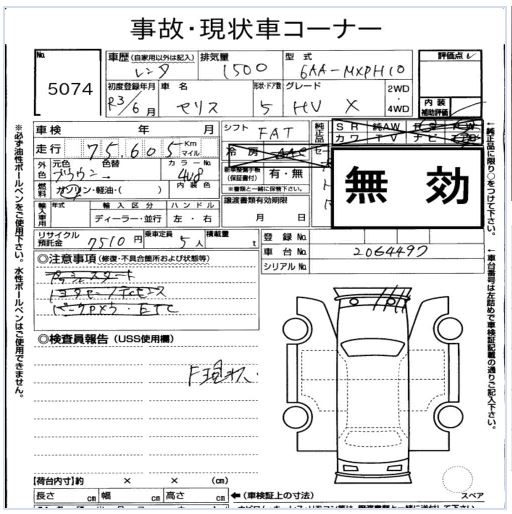 事故・現状車コーナー
No.
5074
車歴 (自家用以外は記入)
レンタ
排気量
1500
型式
6AA-MXPH10
評価点
内装
補助評価
初度登録年月
R3/6月
車名
セリス
形状・ドア数
5
グレード
HV X
2WD
・
4WD
車検 年 月
シフト FAT
純正品
走行 75,605 Km マイル
冷房 AAC
外色 元色 色替
ブラウン
カラーNo.
4U8
有・無
無効
燃料 ガソリン・軽油・( )
内装色
※書類と一緒に保管下さい。
輸入車用
年式
輸入区分
ハンドル
ディーラー・並行
左・右
譲渡書類有効期限
月 日
リサイクル預託金 7510 円
乗車定員 5 人
積載量 t
登録No.
車台No. 2064497
シリアルNo.
◎注意事項 (修復・不具合箇所および状態等)
プッシュスタート
トヨタセーフティセンス
バックカメラ・ETC
◎検査員報告 (USS使用欄)
F現状.
【荷台内寸】約 × × (cm)
長さ cm 幅 cm 高さ cm
←(車検証上の寸法)
スペア
※必ず油性ボールペンをご使用下さい。水性ボールペンはご使用できません。
←純正品に限り○をつけて下さい。
←車台番号は左詰めで車検証記載の通りご記入下さい。